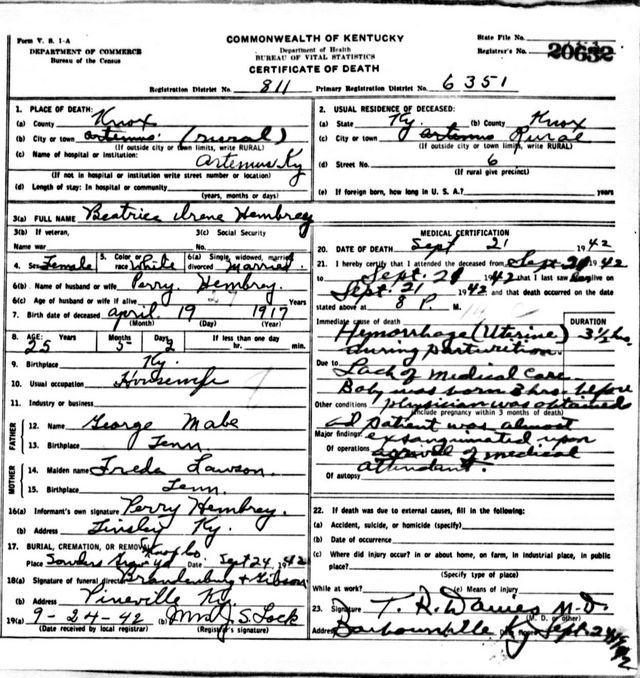 Form V. S. 1-A
DEPARTMENT OF COMMERCE
Bureau of the Census
COMMONWEALTH OF KENTUCKY
Department of Health
BUREAU OF VITAL STATISTICS
CERTIFICATE OF DEATH
State File No.
Registrar's No. 20632
Registration District No. 811 Primary Registration District No. 6351
1. PLACE OF DEATH:
(a) County Knox
(b) City or town Artemus (rural)
(If outside city or town limits, write RURAL)
(c) Name of hospital or institution:
Artemus Ky
(If not in hospital or institution write street number or location)
(d) Length of stay: In hospital or community
(years, months or days)
2. USUAL RESIDENCE OF DECEASED:
(a) State Ky. (b) County Knox
(c) City or town Artemus Rural
(If outside city or town limits, write RURAL)
(d) Street No. 6
(If rural give precinct)
(e) If foreign born, how long in U. S. A.? years
3(a) FULL NAME Beatrice Irene Hembrey
3(b) If veteran, 3(c) Social Security
Name war No.
4. Sex Female 5. Color or race White 6(a) Single, widowed, married, divorced Married
6(b) Name of husband or wife Perry Hembrey.
6(c) Age of husband or wife if alive Years
7. Birth date of deceased April 19 1917
(Month) (Day) (Year)
8. AGE: Years Months Days If less than one day
25 5 2 hr. min.
9. Birthplace Ky.
10. Usual occupation Housewife
11. Industry or business
FATHER
12. Name George Mabe
13. Birthplace Tenn.
MOTHER
14. Maiden name Freda Lawson.
15. Birthplace Tenn.
16(a) Informant's own signature Perry Hembrey.
(b) Address Tinsley Ky.
17. BURIAL, CREMATION, OR REMOVAL Knox Co.
Place Date Sept 24, 1942
18(a) Signature of funeral director Brandenburg & Gibson
(b) Address Pineville Ky.
19(a) 9-24-42 (b) J. S. Lock
(Date received by local registrar) (Registrar's signature)
MEDICAL CERTIFICATION
20. DATE OF DEATH Sept 21 1942
21. I hereby certify that I attended the deceased from Sept. 1942
to Sept. 1942 that I last saw her alive on
Sept. 21 1942 and that death occurred on the date
stated above at 8 P. M.
Immediate cause of death DURATION
Hemorrhage (Uterine) 3½ hrs.
during parturition.
Due to Lack of Medical Care
Baby was born 3 hrs. before
Other conditions physician was obtained
(Include pregnancy within 3 months of death)
patient was almost
Major findings: exsanguinated upon
Of operations arrival of medical
attendant.
Of autopsy
22. If death was due to external causes, fill in the following:
(a) Accident, suicide, or homicide (specify)
(b) Date of occurrence
(c) Where did injury occur? in or about home, on farm, in industrial place, in public
place?
(Specify type of place)
While at work? (e) Means of injury
23. Signature T. R. Davies M.D.
(M. D. or other)
Address Barbourville Ky Sept 24